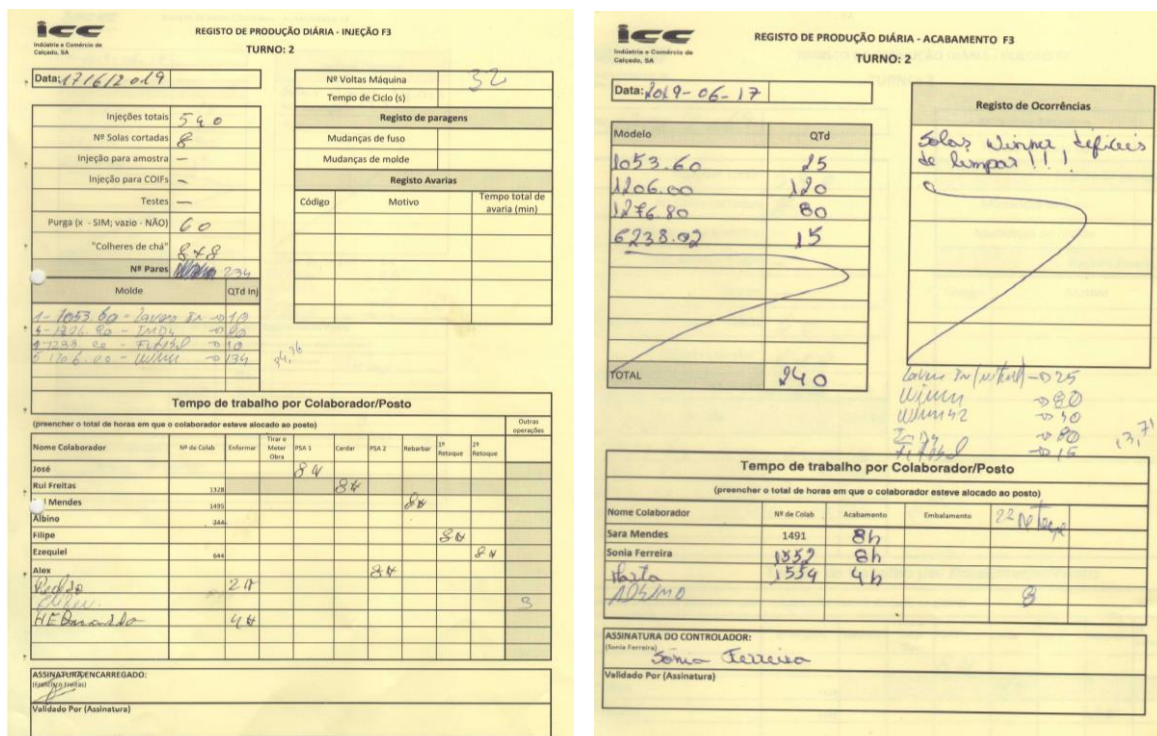 icc
Indústria e Comércio de
Calçado, SA
REGISTO DE PRODUÇÃO DIÁRIA - INJEÇÃO F3
TURNO: 2
Data: 17/6/2019
Injeções totais 540
Nº Solas cortadas 8
Injeção para amostra —
Injeção para COIFs —
Testes —
Purga (x - SIM; vazio - NÃO) 60
"Colheres de chá" 8+8
Nº Pares 234
Molde QTd Inj
1- 1053.60 - →10
→
→10
→134
Nº Voltas Máquina 32
Tempo de Ciclo (s)
Registo de paragens
Mudanças de fuso
Mudanças de molde
Registo Avarias
Código Motivo Tempo total de
avaria (min)
34,36
Tempo de trabalho por Colaborador/Posto
(preencher o total de horas em que o colaborador esteve alocado ao posto) Outras
operações
Nome Colaborador Nº de Colab Enformar Tirar e
Meter
Obra PSA 1 Cardar PSA 2 Rebarbar 1º
Retoque 2º
Retoque
José 8H
Rui Freitas 1328 8H
Mendes 1495 8H
Albino 344
Filipe 8H
Ezequiel 644 8H
Alex 8H
Pedro 2H
4H
ASSINATURA ENCARREGADO:
(Francisco Freitas)
Validado Por (Assinatura)
icc
Indústria e Comércio de
Calçado, SA
REGISTO DE PRODUÇÃO DIÁRIA - ACABAMENTO F3
TURNO: 2
Data: 2019-06-17
Modelo QTd
1053.60 25
1206.00 120
1276.80 80
6238.02 15
TOTAL 240
Registo de Ocorrências
Solas Winner difíceis
de limpar!!!
→25
→80
→80
→15
Tempo de trabalho por Colaborador/Posto
(preencher o total de horas em que o colaborador esteve alocado ao posto)
Nome Colaborador Nº de Colab Acabamento Embalamento
Sara Mendes 1491 8h
Sonia Ferreira 1552 8h
Marta 1554 4h
8
ASSINATURA DO CONTROLADOR:
(Sonia Ferreira)
Sónia Ferreira
Validado Por (Assinatura)